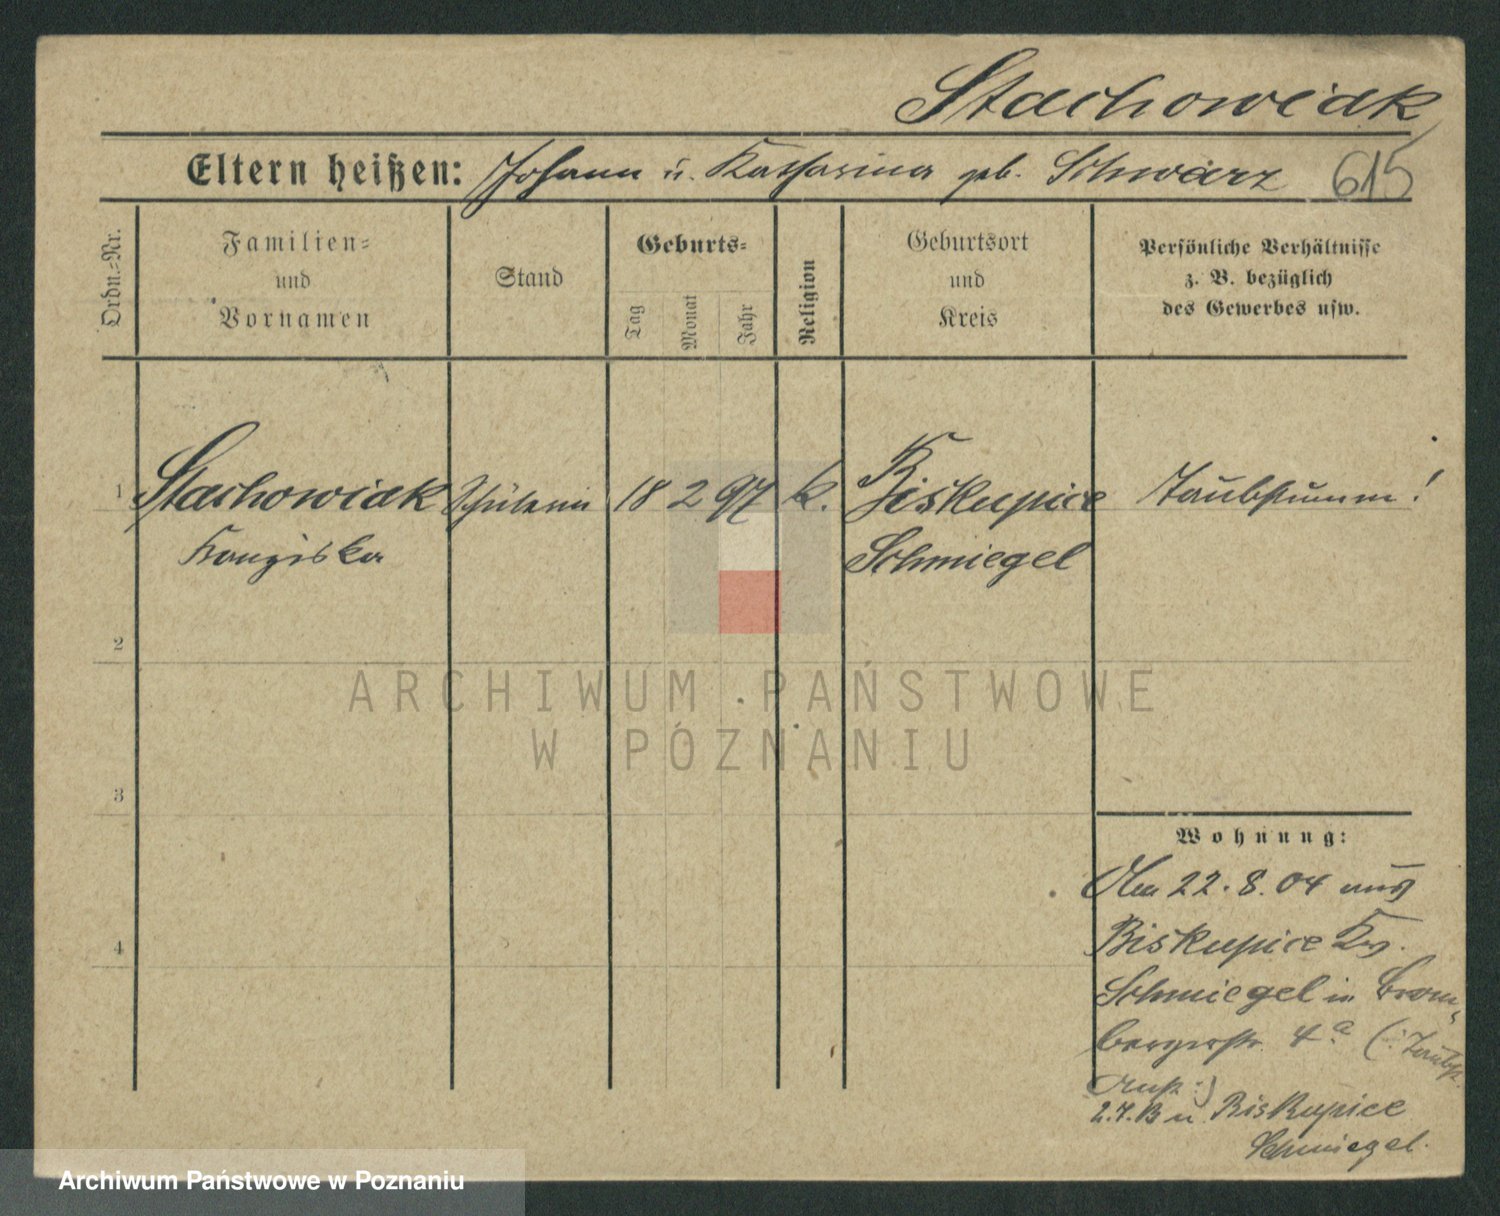 Stachowiak
Eltern heißen: Johann u. Katharina geb. Schwarz 615
Ordn.=Nr.
Familien=
und
Vornamen
Stand
Geburts=
Tag
Monat
Jahr
Religion
Geburtsort
und
Kreis
Persönliche Verhältnisse
z. B. bezüglich
des Gewerbes usw.
1 Stachowiak Schülerin 18 2 97 k. Biskupice Taubstumm!
Franziska Schmiegel
2
3
4
ARCHIWUM PAŃSTWOWE
W POZNANIU
Wohnung:
Am 22. 8. 04 aus
Biskupice Krs.
Schmiegel in Brom-
bergerstr. 4a (: Taubst.
Anst :)
Biskupice
Schmiegel.
Archiwum Państwowe w Poznaniu